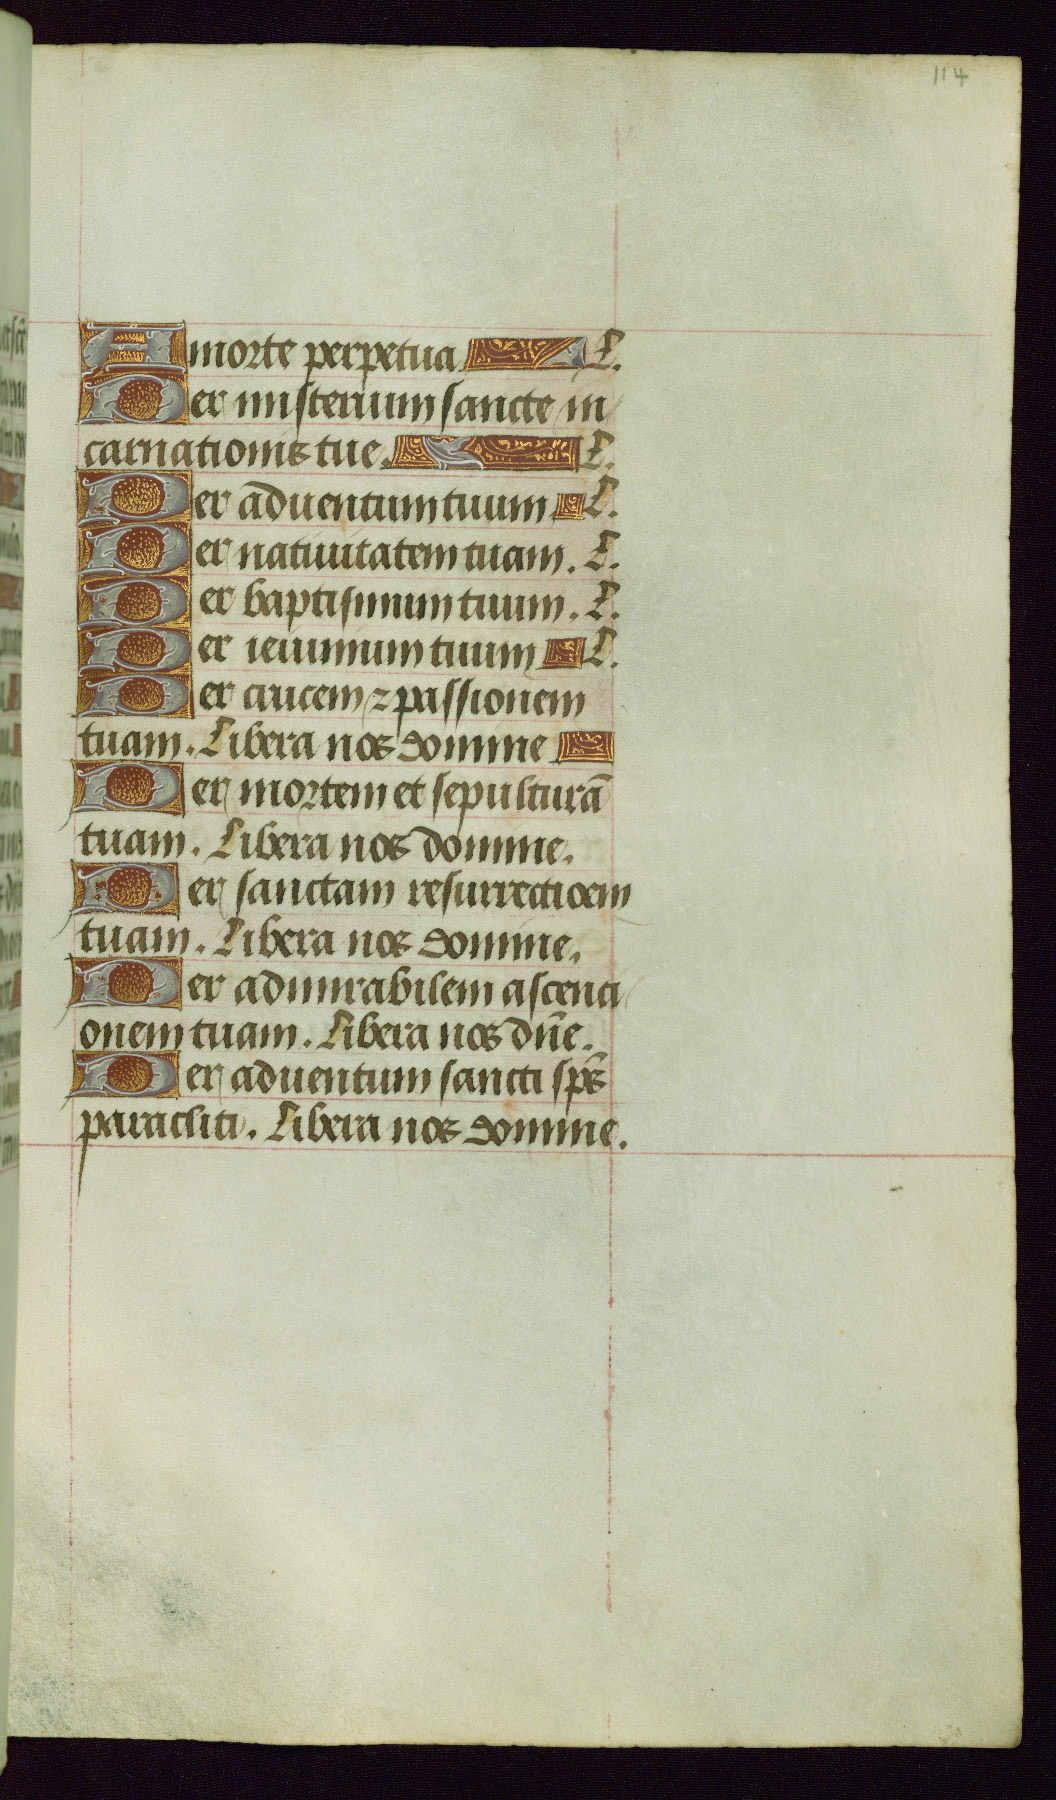 114
A morte perpetua. L.
Per misterium sancte in
carnationis tue. L.
Per aduentum tuum L.
Per natiuitatem tuam. L.
Per baptismum tuum. L.
Per ieiunium tuum L.
Per crucem ⁊ passionem
tuam. Libera nos domine
Per mortem et sepulturā
tuam. Libera nos domine.
Per sanctam resurrectioem
tuam. Libera nos domine.
Per admirabilem ascenci
onem tuam. Libera nos dn̄e.
Per aduentum sancti sp̄s
paracliti. Libera nos domine.